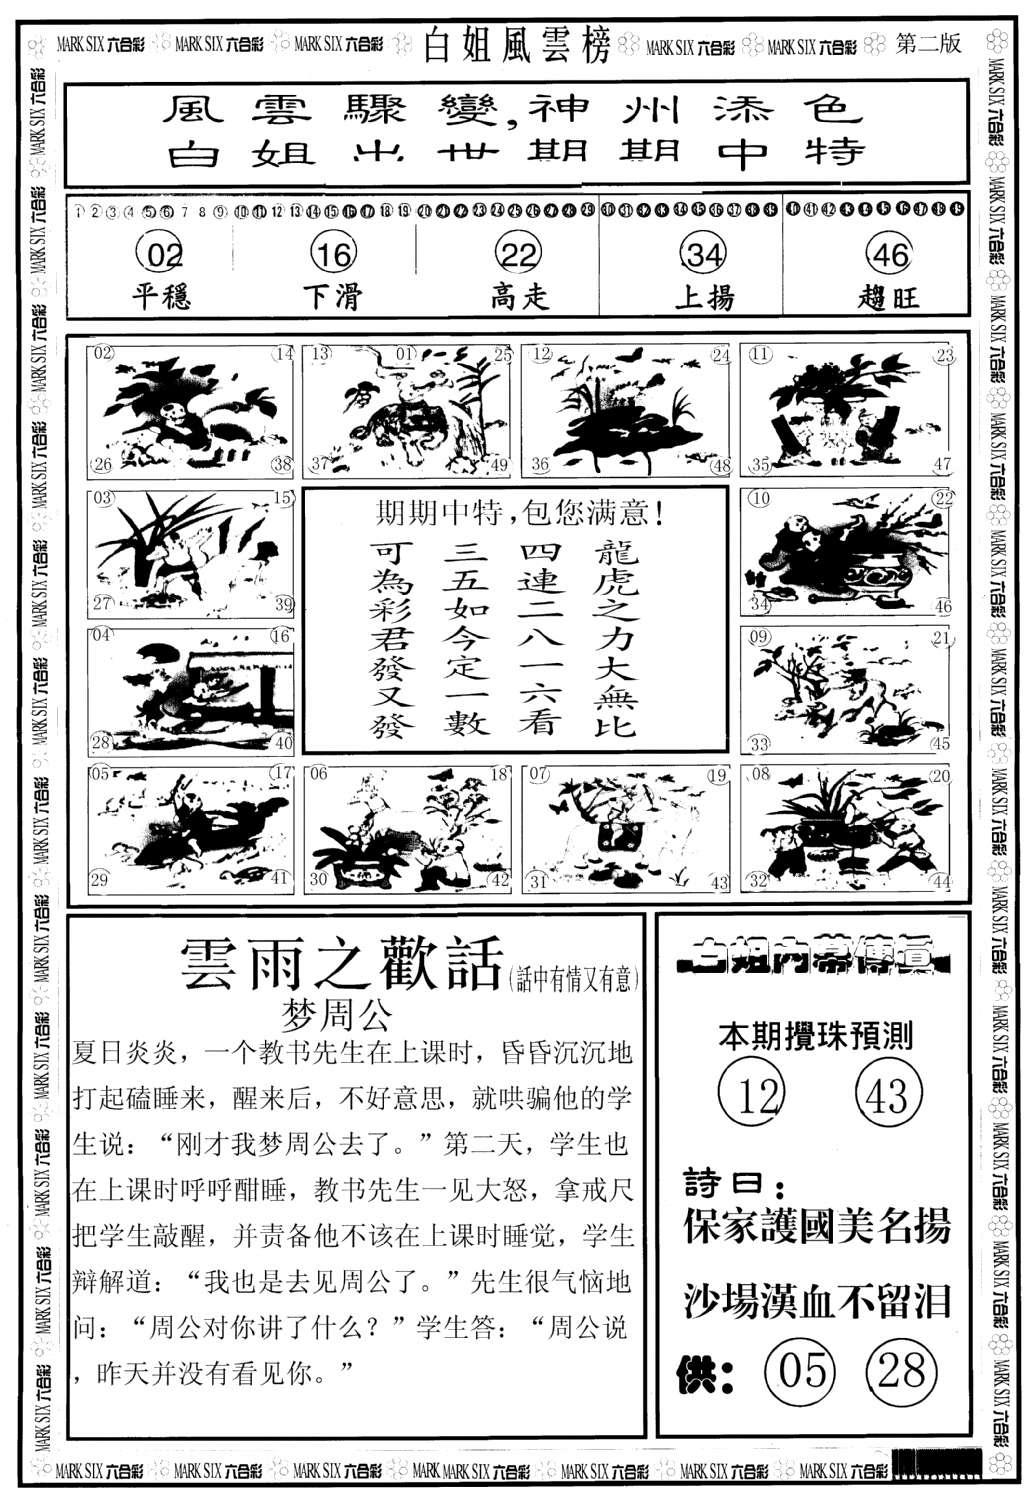 MARK SIX 六合彩 MARK SIX 六合彩 MARK SIX 六合彩 白姐風雲榜 MARK SIX 六合彩 MARK SIX 六合彩 第二版
風雲驟變,神州添色
白姐出世期期中特
1 2 3 4 5 6 7 8 9 10 11 12 13 14 15 16 17 18 19 20 21 22 23 24 25 26 27 28 29 30 31 32 33 34 35 36 37 38 39 40 41 42 43 44 45 46 47 48 49
02 16 22 34 46
平穩 下滑 高走 上揚 趨旺
02 14 13 01 25 12 24 11 23
26 38 37 49 36 48 35 47
03 15 10 22
27 39 34 46
04 16 09 21
28 40 33 45
05 17 06 18 07 19 08 20
29 41 30 42 31 43 32 44
期期中特,包您满意!
龍虎之力大無比
四連二八一六看
三五如今定一數
可為彩君發又發
雲雨之歡話(話中有情又有意)
梦周公
夏日炎炎，一个教书先生在上课时，昏昏沉沉地
打起磕睡来，醒来后，不好意思，就哄骗他的学
生说：“刚才我梦周公去了。”第二天，学生也
在上课时呼呼酣睡，教书先生一见大怒，拿戒尺
把学生敲醒，并责备他不该在上课时睡觉，学生
辩解道：“我也是去见周公了。”先生很气恼地
问：“周公对你讲了什么？”学生答：“周公说
，昨天并没有看见你。”
白姐内幕傳真
本期攪珠預測
12 43
詩曰：
保家護國美名揚
沙場漢血不留泪
供： 05 28
MARK SIX 六合彩 MARK SIX 六合彩 MARK SIX 六合彩 MARK MARK SIX 六合彩 MARK SIX 六合彩 MARK SIX 六合彩 MARK SIX 六合彩